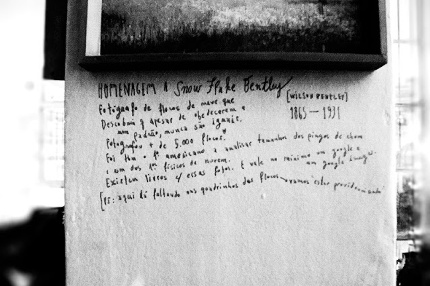 HOMENAGEM A Snow Flake Bentley
[WILSON BENTLEY]
1865 — 1931
Fotógrafo de flocos de neve que
Descobriu q apesar de obedecerem a
um padrão, nunca são iguais.
Fotografou + de 5.000 flocos.
Foi tbm o 1º americano a analisar tamanhos dos pingos de chuva
e um dos 1ºs físicos de nuvem.
Existem livros c/ essas fotos. E vale no máximo um google
um google images.
[PS: aqui tá faltando uns quadrinhos dos flocos